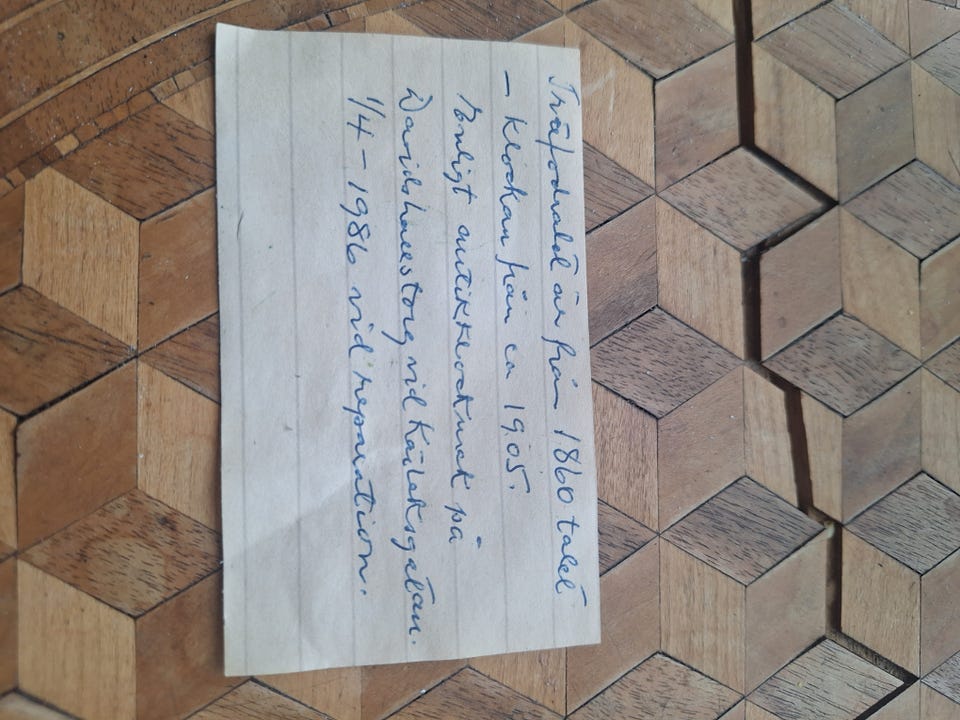 Träfodralet är från 1860 talet
- Klockan från ca 1905.
Enligt antikklockmak på
Davidshallstorg vid Kärleksgatan.
1/4 - 1986 vid reparation.